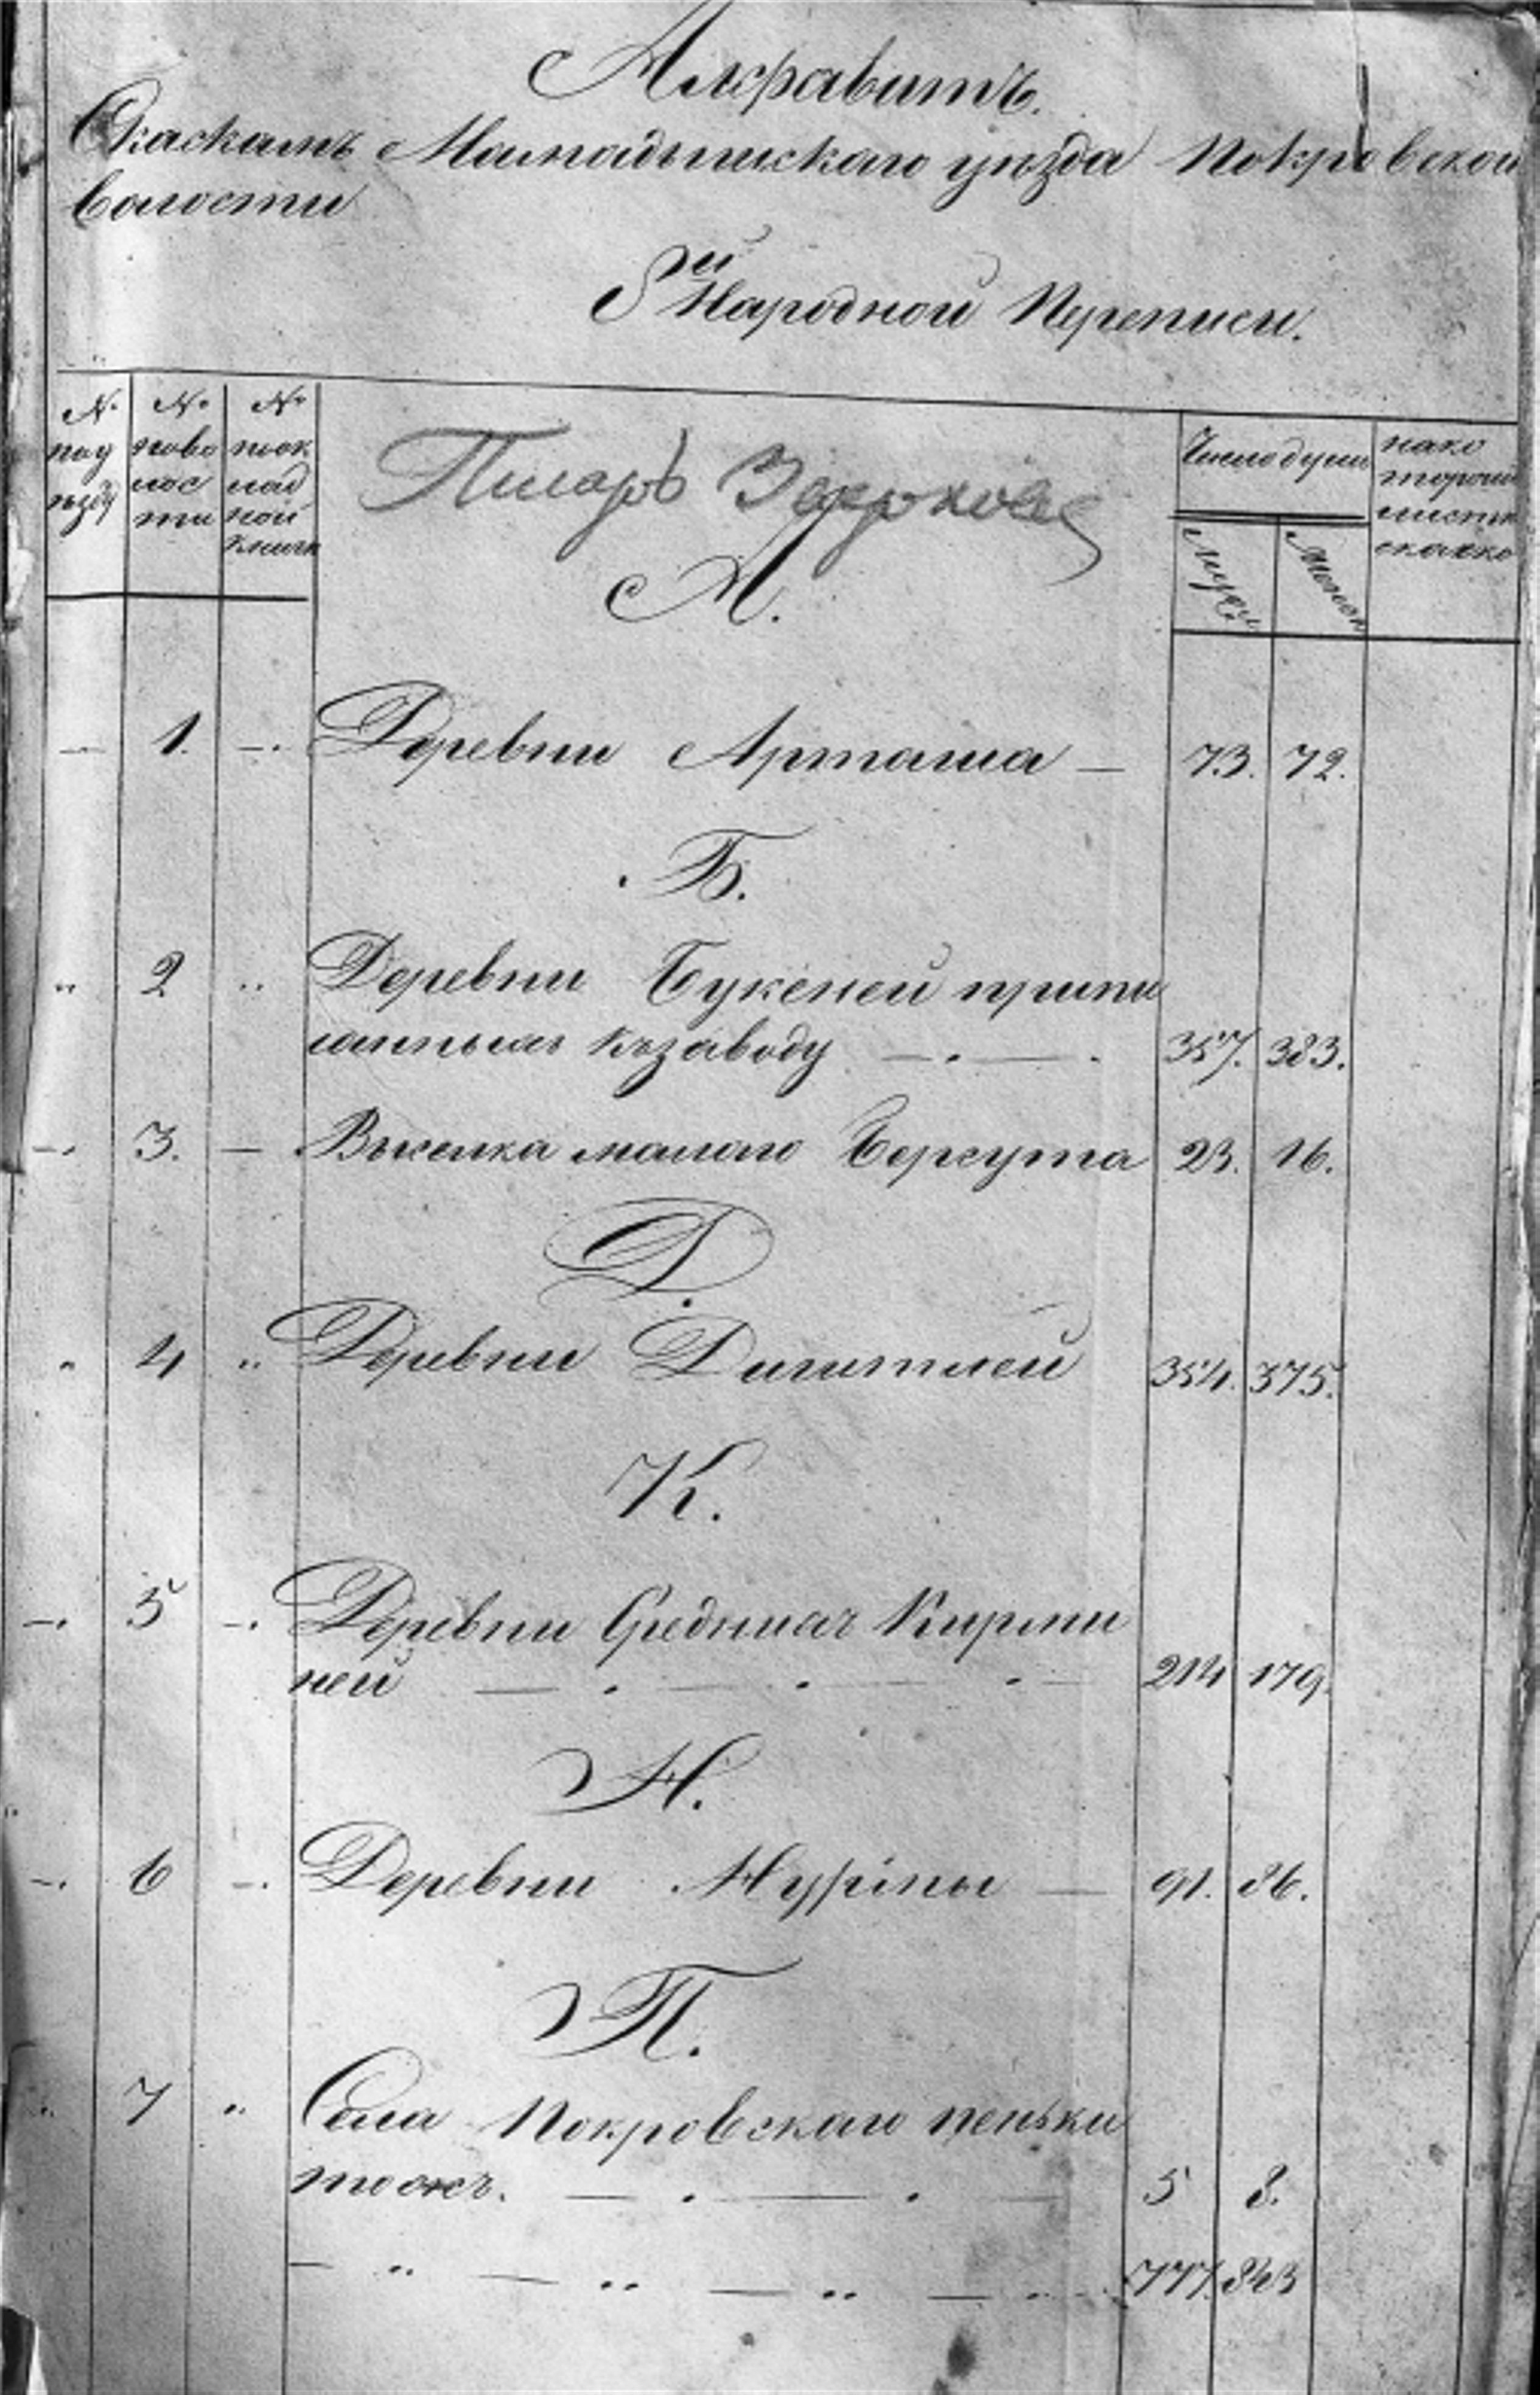 Алфавитъ.
Скаскамъ Мамадышскаго уѣзда Покровской
волости
9й Народной Переписи.
№ поу ѣзду
№ пово лос ти
№ пок лад ной книги
Писарь
Число душъ
мужес
женск
на ко торомъ листѣ скаска
А.
— 1. —. Деревни Арташа — 73. 72.
Б.
" 2 " Деревни Букеней припи
санныхъ къ заводу — . — . 357. 383.
—. 3. — Выселка малаго Берсута 23. 16.
Д.
" 4 " Деревни Дигитлей 354. 375.
К.
—. 5 —. Деревни Среднихъ Кирми
ней — . — . — . — 214 179.
Н.
—. 6 —. Деревни Нуріны — 91. 86.
П.
" 7 " Села Покровскаго пеньки
тожъ. — . — . — 5 8.
— " — " — " — " 777. 843